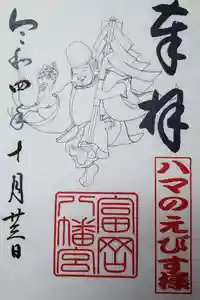 奉拝
ハマのえびす様
富岡八幡宮
令和四年十月廿三日